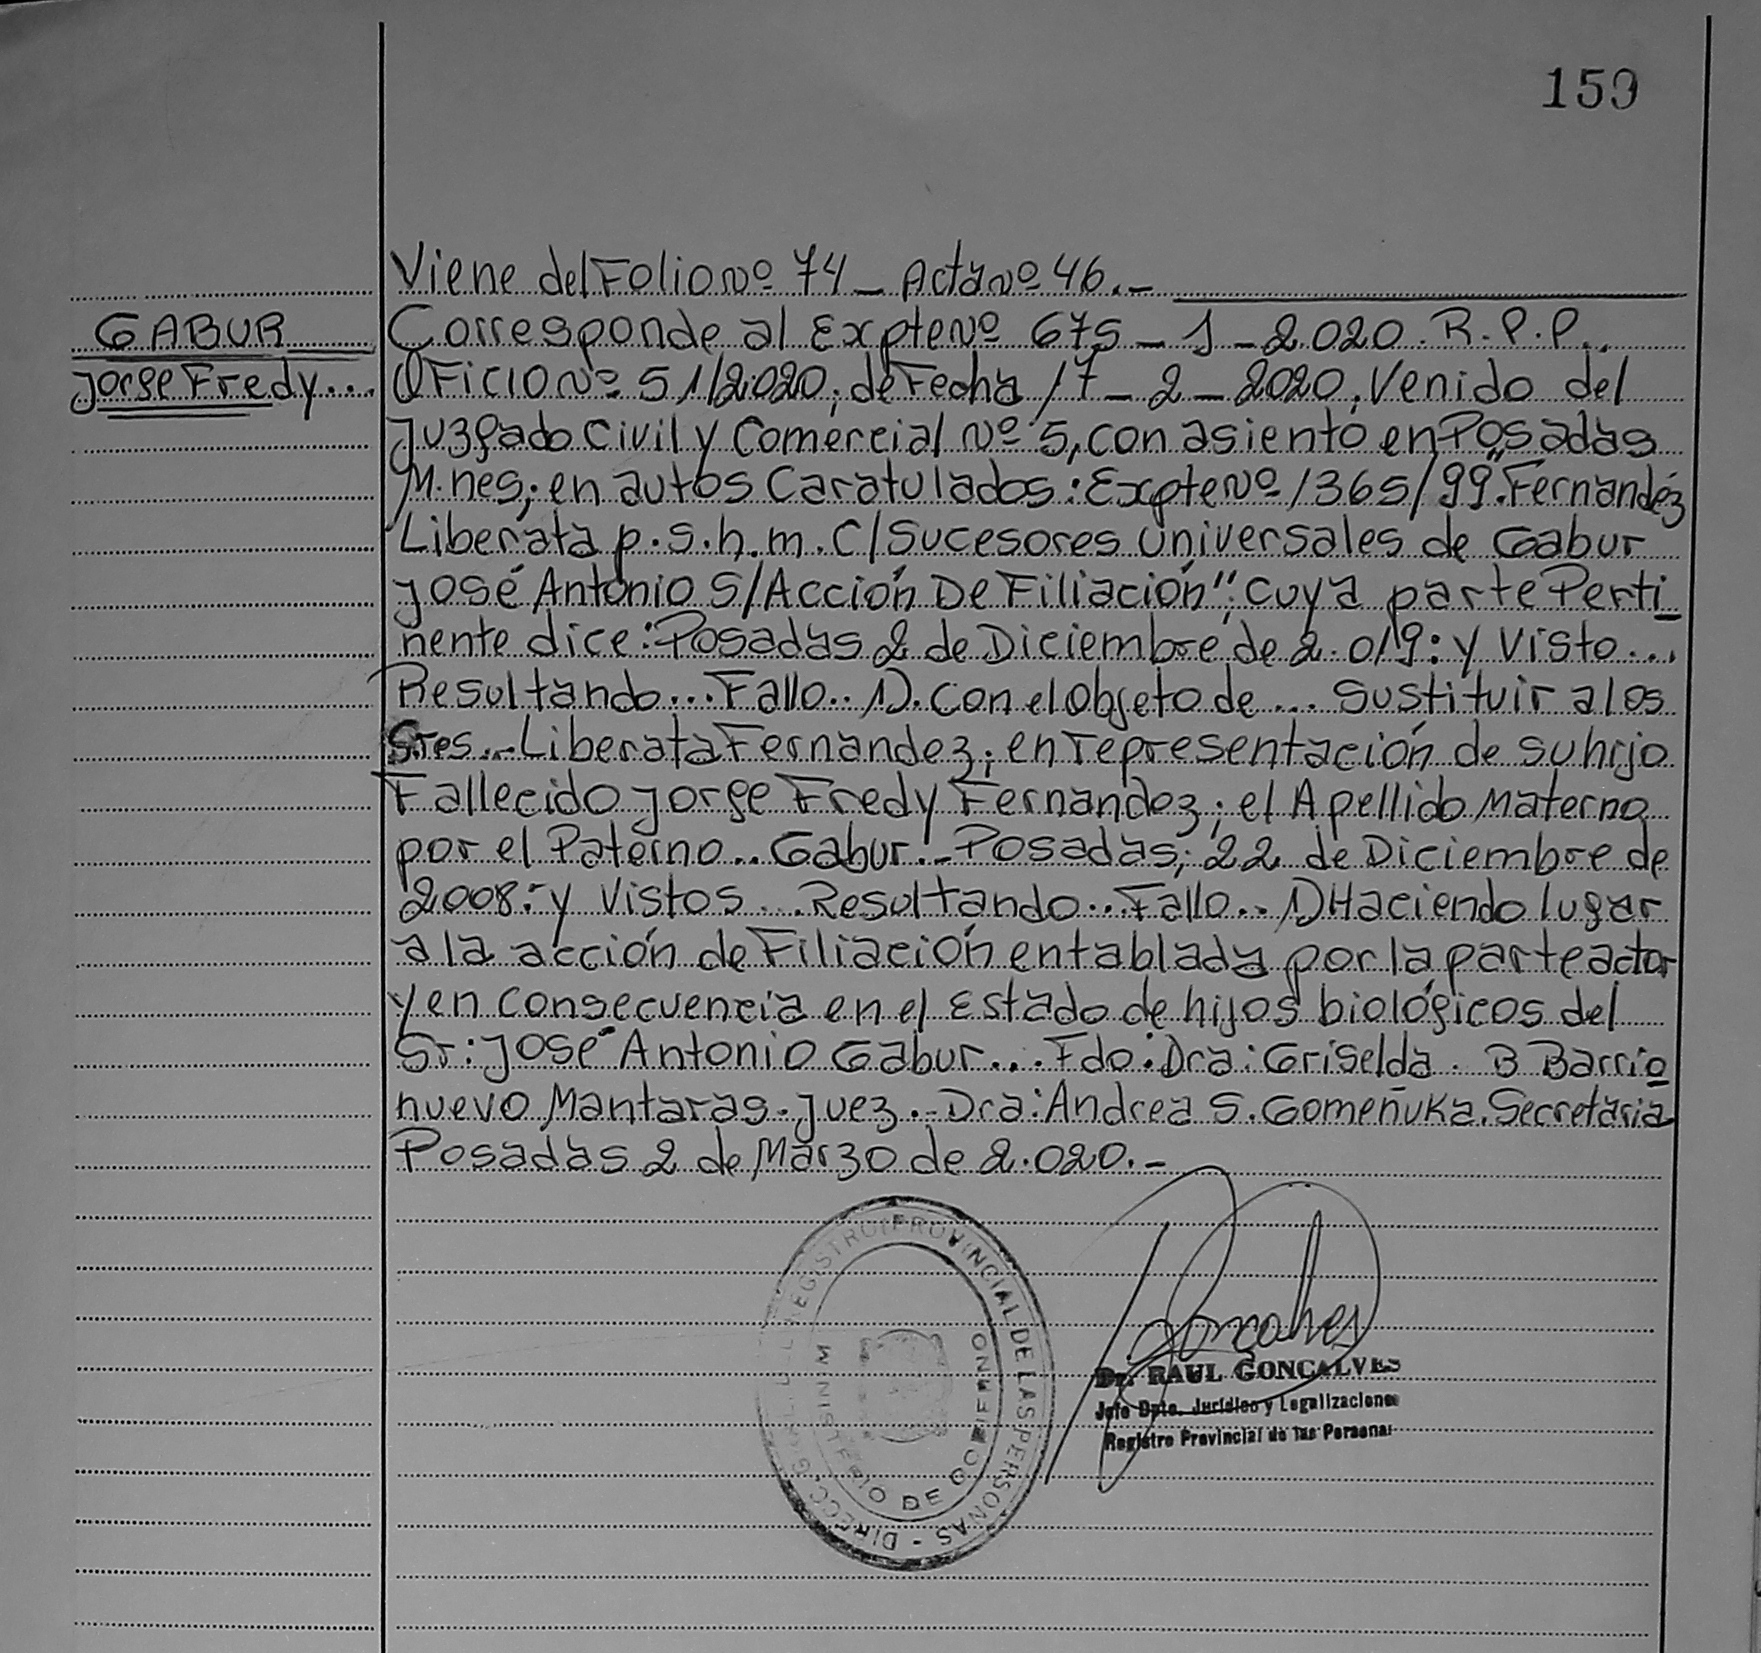 159
Viene del Folio Nº 74 - Acta Nº 46.-
GABUR
Corresponde al Expte Nº 675 - J - 2.020. R.P.P..
Jorge Fredy...
Oficio Nº 51/2.020, de Fecha 17 - 2 - 2020, Venido del
Juzgado Civil y Comercial Nº 5, con asiento en Posadas
M.nes; en autos Caratulados: Expte Nº 1365/99."Fernandéz
Liberata p.s.h.m. C/Sucesores Universales de Gabur
José Antonio S/Acción De Filiación"; cuya parte Perti_
nente dice: Posadas 2 de Diciembre de 2.019: y Visto...
Resultando... Fallo.. 1). Con el objeto de ... sustituir a los
Sres... Liberata Fernandez; en representación de su hijo
Fallecido Jorge Fredy Fernandez; el Apellido Materno
por el Paterno.. Gabur.- Posadas; 22 de Diciembre de
2008:- y Vistos... Resultando... Fallo.. 1) Haciendo lugar
a la acción de Filiación entablada por la parte actor
y en consecuencia en el Estado de hijos biológicos del
Sr: José Antonio Gabur... Fdo: Dra: Griselda. B Barrio
nuevo Mantaras. Juez.- Dra: Andrea S. Gomeñuka. Secretaria
Posadas 2 de Marzo de 2.020.-
REGISTRO PROVINCIAL DE LAS PERSONAS - DIRECC. G
MINISTERIO DE GOBIERNO
Goncalves
Dr. RAUL GONÇALVES
Jefe Dpto. Jurídico y Legalizaciones
Registro Provincial de las Personas